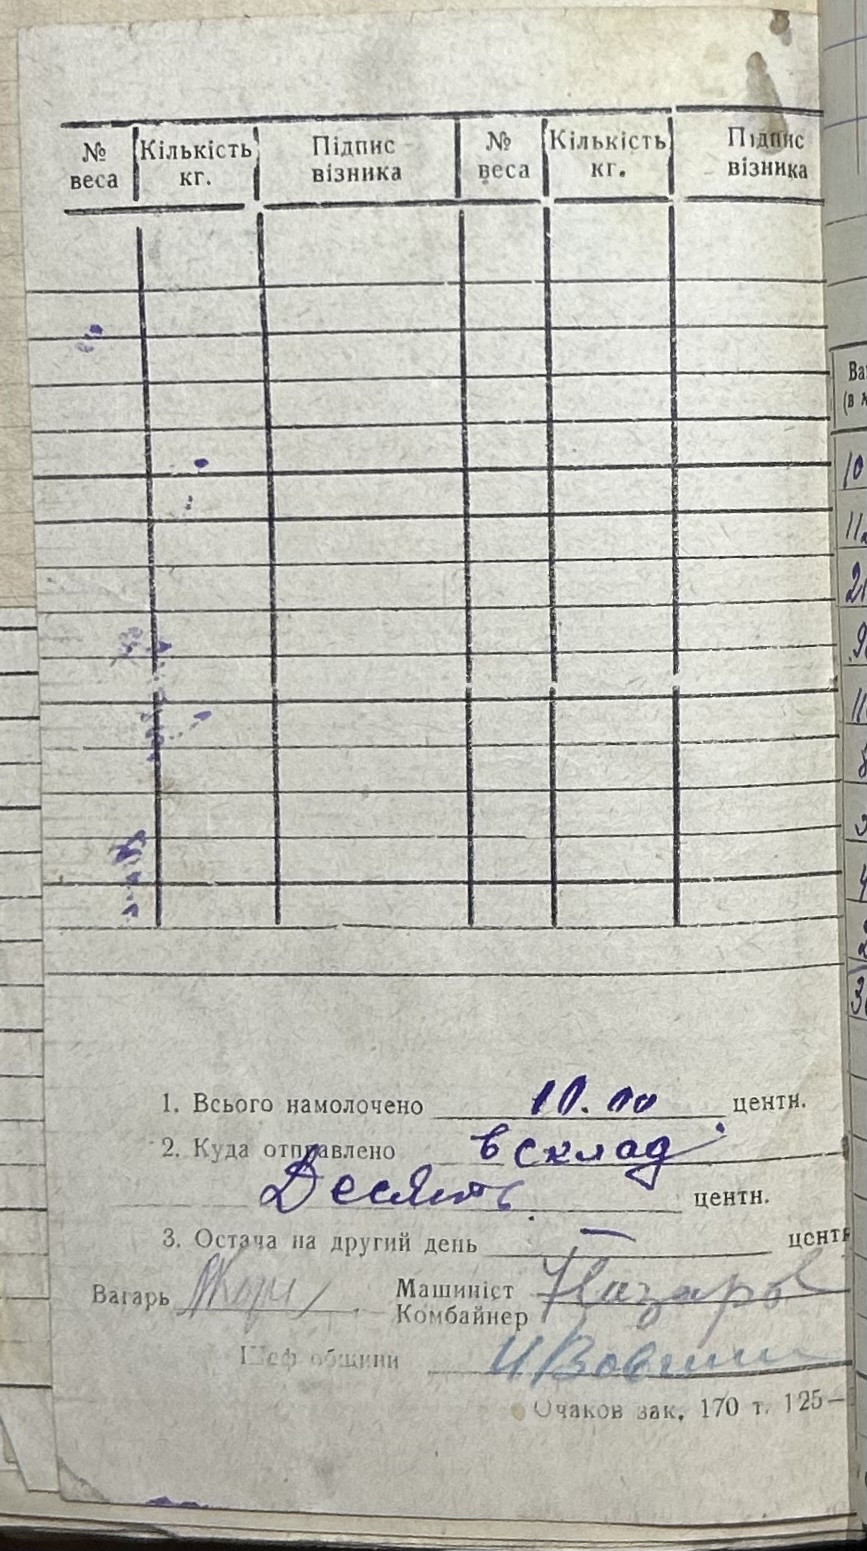 № веса Кількість кг. Підпис візника № веса Кількість кг. Підпис візника
1. Всього намолочено 10.00 центн.
2. Куда отправлено в склад
Десять центн.
3. Остача на другий день — центн
Вагарь Машиніст Комбайнер Назаров
Шеф общини
Очаков зак. 170 т. 125—
Ва
(в к
10